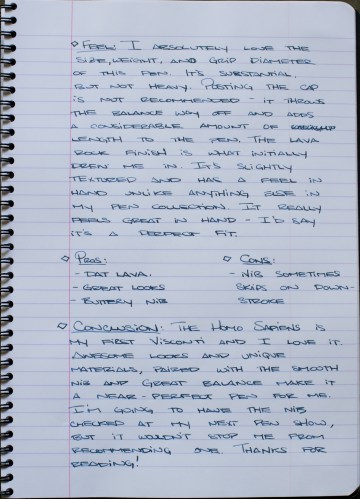 ◇ Feel: I absolutely love the
size, weight, and grip diameter
of this pen. It's substantial,
but not heavy. Posting the cap
is not recommended - it throws
the balance way off and adds
a considerable amount of
length to the pen. The lava
rock finish is what initially
drew me in. It's slightly
textured and has a feel in
hand unlike anything else in
my pen collection. It really
feels great in hand - I'd say
it's a perfect fit.
◇ Pros:
- Dat lava.
- Great looks
- Buttery nib
◇ Cons:
- Nib sometimes
skips on down-
stroke
◇ Conclusion: The Homo Sapiens is
my first Visconti and I love it.
Awesome looks and unique
materials, paired with the smooth
nib and great balance make it
a near-perfect pen for me.
I'm going to have the nib
checked at my next pen show,
but it wouldn't stop me from
recommending one. Thanks for
reading!